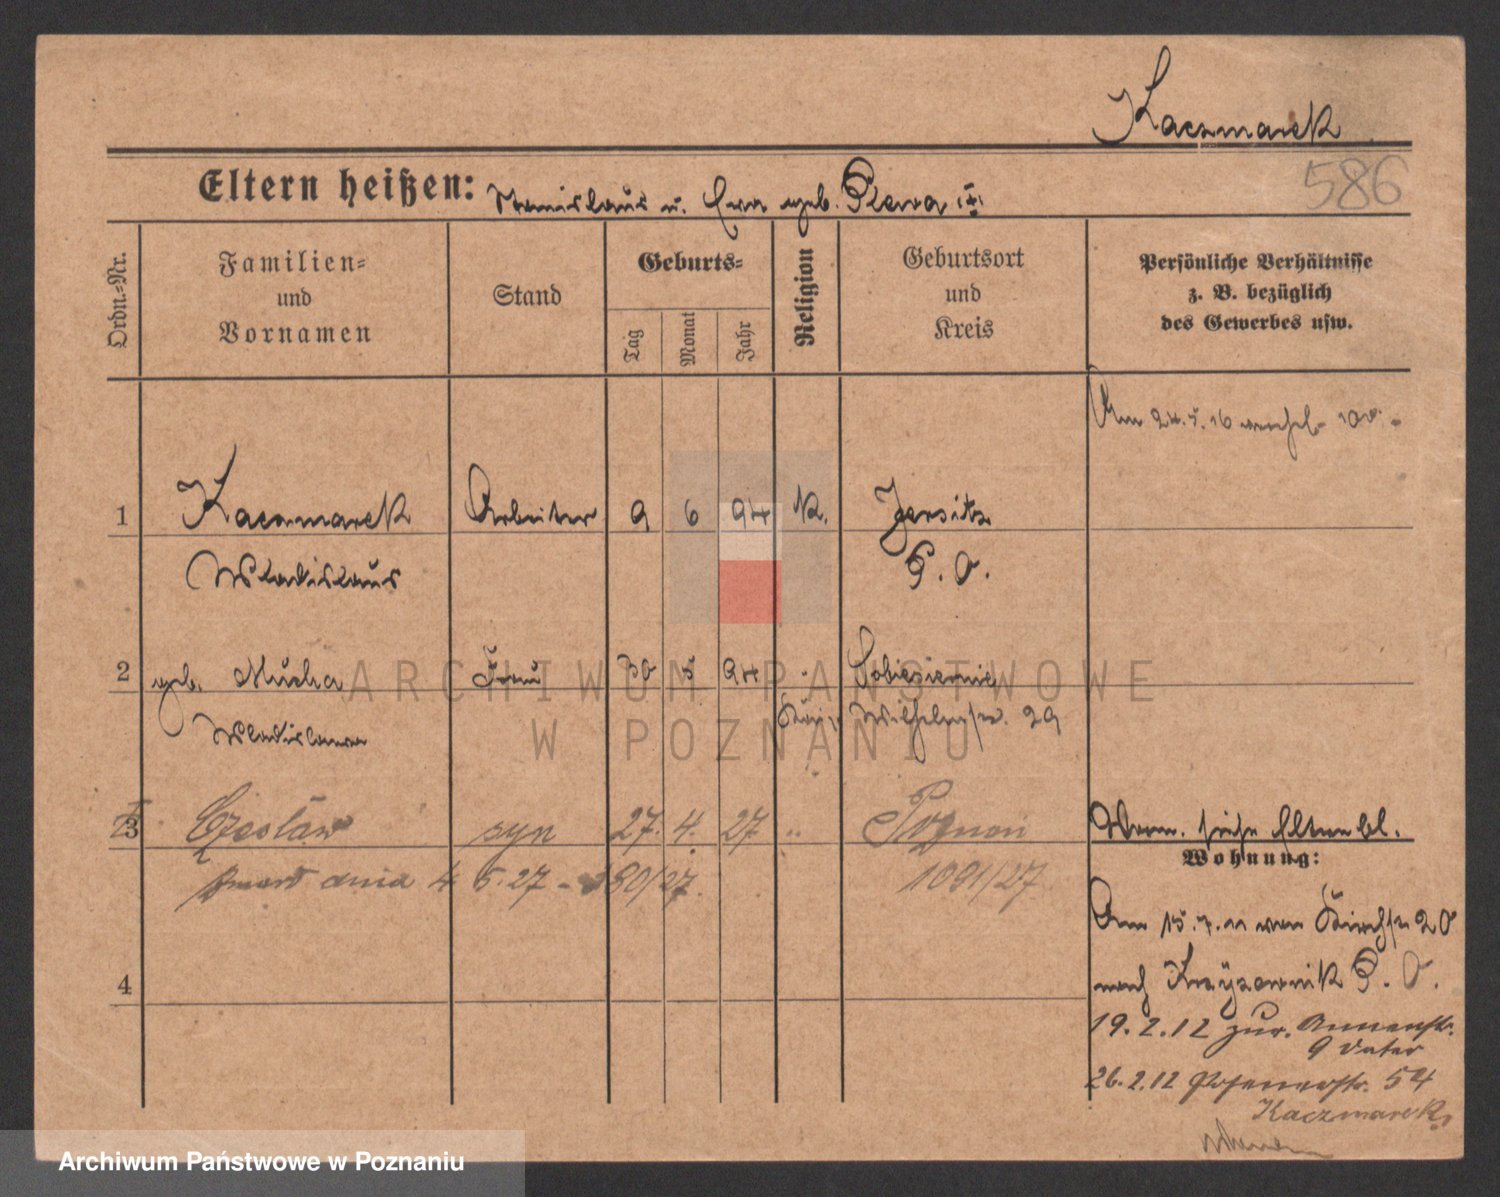 Kaczmarek
586
Eltern heißen: Stanislaus u. Ewa geb. Plewa
Ordn.-Nr.
Familien-
und
Vornamen
Stand
Geburts-
Tag
Monat
Jahr
Religion
Geburtsort
und
Kreis
Persönliche Verhältnisse
z. B. bezüglich
des Gewerbes usw.
Am 24.5.16
1 Kaczmarek Arbeiter 9 6 94 K. Jersitz
Wladislaus P. O.
2 geb. Mucha Frau 30 5 94 Sobiesiernie
Wladislawa Wilhelmstr. 29
ARCHIWUM PAŃSTWOWE
W POZNANIU
3 Czesław syn 27. 4. 27 " Poznań
zmarł dnia 4 5. 27 - 180/27. 1091/27
Vorm. siehe Elternbl.
Wohnung:
Am 15.7.11 von Kirchstr 20
nach Krzyzownik P. O.
4
19.2.12 zur. Annenstr.
9 Vater
26.2.12 Posenerstr. 54
Kaczmarek
Archiwum Państwowe w Poznaniu